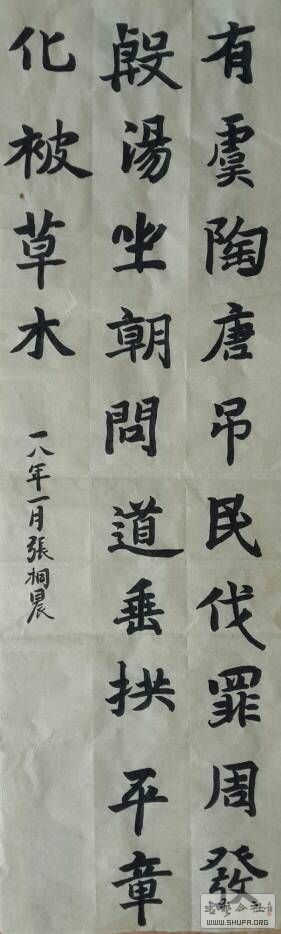 有虞陶唐吊民伐罪周發
殷湯坐朝問道垂拱平章
化被草水
一八年一月張桐晨
書藝公社
WWW.SHUFA.ORG